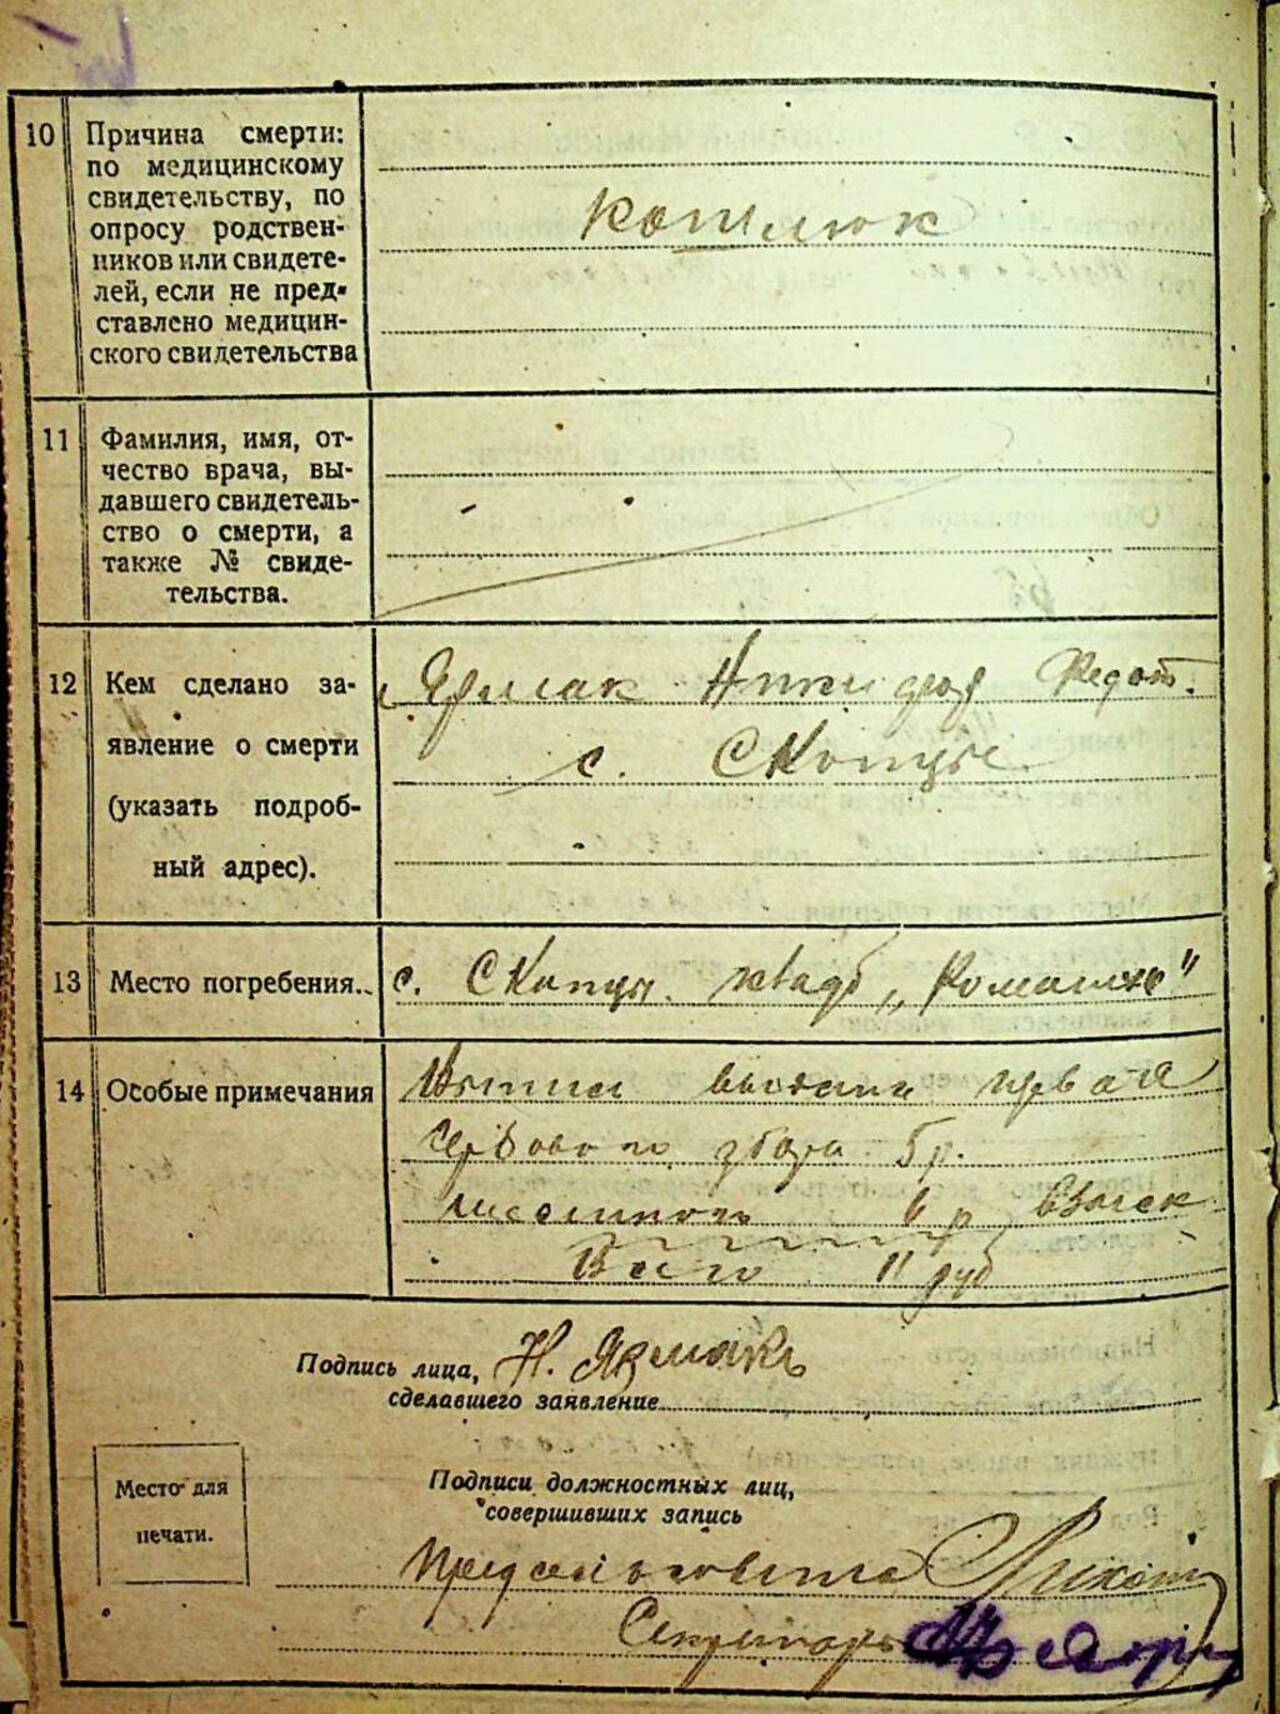 10 Причина смерти:
по медицинскому
свидетельству, по
опросу родствен-
ников или свидете-
лей, если не пред-
ставлено медицин-
ского свидетельства
кошлюк
11 Фамилия, имя, от-
чество врача, вы-
давшего свидетель-
ство о смерти, а
также № свиде-
тельства.
12 Кем сделано за-
явление о смерти
(указать подроб-
ный адрес).
Ярмак Федот.
с. Скопцы
13 Место погребения..
с. Скопцы. кладб „
14 Особые примечания
збора 5 р.
6 р
Всего 11 руб
Подпись лица,
сделавшего заявление
Н. Ярмакъ
Место для
печати.
Подписи должностных лиц,
совершивших запись
Пред сельсовета
Секретарь